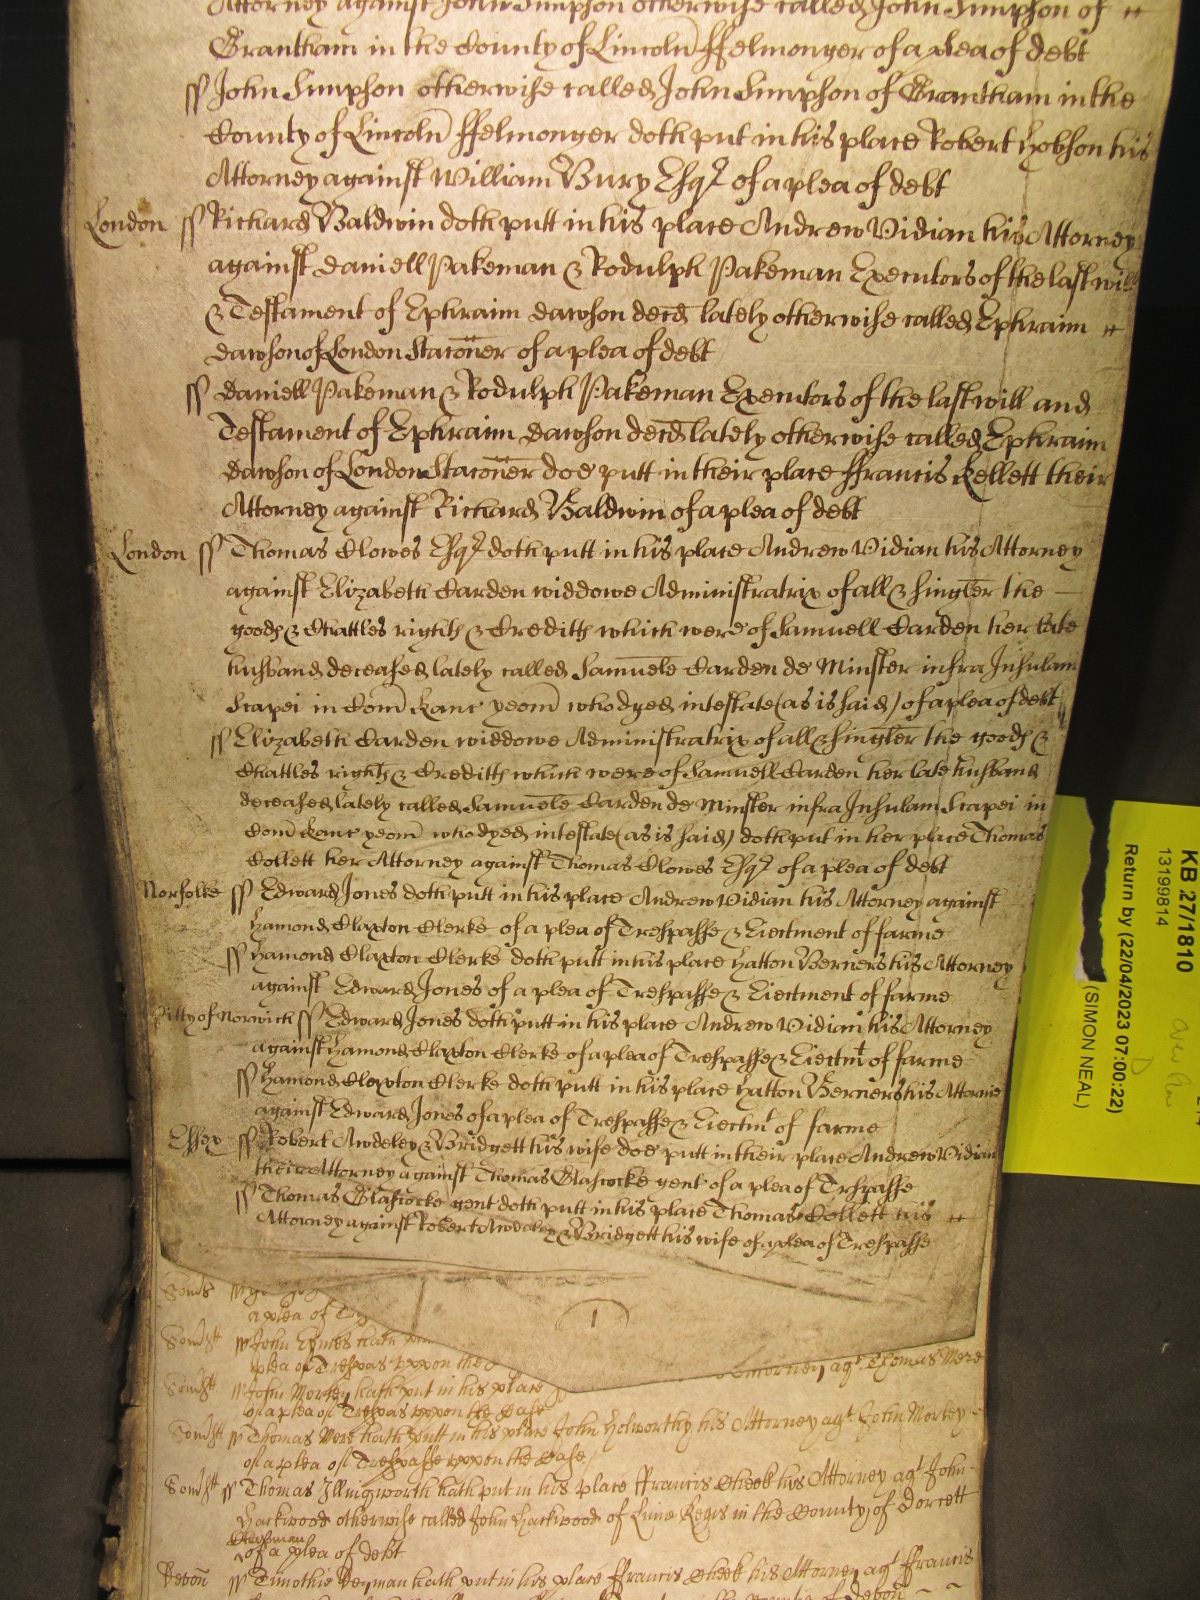 Attorney against John Simpson otherwise called John Simpson of
Grantham in the County of Lincoln ffelmonger of a plea of debt
ss John Simpson otherwise called John Simpson of Grantham in the
County of Lincoln ffelmonger doth put in his place Robert Hobson his
Attorney against William Bury Esqr of a plea of debt
London ss Richard Baldwin doth putt in his place Andrew Vidian his Attorney
against Daniell Pakeman & Rodulph Pakeman Executors of the last will
& Testament of Ephraim Dawson decd lately otherwise called Ephraim
Dawson of London Staconer of a plea of debt
ss Daniell Pakeman & Rodulph Pakeman Executors of the last will and
Testament of Ephraim Dawson decd lately otherwise called Ephraim
Dawson of London Staconer doe putt in their place ffrancis Kellett their
Attorney against Richard Baldwin of a plea of debt
London ss Thomas Clowes Esqr doth putt in his place Andrew Vidian his Attorney
against Elizabeth Carden widdowe Administratrix of all & singler the
goods & Chattles rights & Creditts which were of Samuell Carden her late
husband deceased lately called Samuele Carden de Minster infra Insulam
Scapei in Com Kanc yeom who dyed intestate (as is said) of a plea of debt
ss Elizabeth Carden widdowe Administratrix of all & singler the goods &
Chattles rights & Creditts which were of Samuell Carden her late husband
deceased lately called Samuele Carden de Minster infra Insulam Scapei in
Com Kanc yeom who dyed intestate (as is said) doth put in her place Thomas
Collett her Attorney against Thomas Clowes Esqr of a plea of debt
Norfolke ss Edward Jones doth putt in his place Andrew Vidian his Attorney against
Hamond Claxton Clerke of a plea of Trespasse & Eiectment of farme
ss Hamond Claxton Clerke doth putt in his place Hatton Berners his Attorney
against Edward Jones of a plea of Trespasse & Eiectment of farme
Citty of Norwich ss Edward Jones doth putt in his place Andrew Vidian his Attorney
against Hamond Claxton Clerke of a plea of Trespasse & Eiectmt of farme
ss Hamond Claxton Clerke doth putt in his place Hatton Berners his Attornie
against Edward Jones of a plea of Trespasse & Eiectmt of farme
Essex ss Robert Awdeley & Bridgett his wife doe putt in their place Andrew Vidian
their Attorney against Thomas Glascocke gent of a plea of Trespasse
ss Thomas Glascocke gent doth putt in his place Thomas Collett his
Attorney against Robert Awdeley & Bridgett his wife of a plea of Trespasse
1
a plea of
Somst ss John Eymes hath
plea of Trespas uppon the
Attorney agt Thomas Mere
Somst ss John Morley hath put in his place
of a plea of Trespas uppon the Case
Somsst ss Thomas Mere hath putt in his place John Holworthy his Attorney agt John Morley
of a plea of Trespasse uppon the Case
Somsst ss Thomas Illingworth hath put in his place ffrancis Cheek his Attorney agt John
Hackwood otherwise called John Hackwood of Lime Regis in the County of Dorcett
of a plea of debt
Devon ss Timothie hath put in his place ffrancis Cheek his Attorney agt ffrancis
the Countie of Devon
KB 27/1810
13199814
Return by (22/04/2023 07:00:22)
(SIMON NEAL)